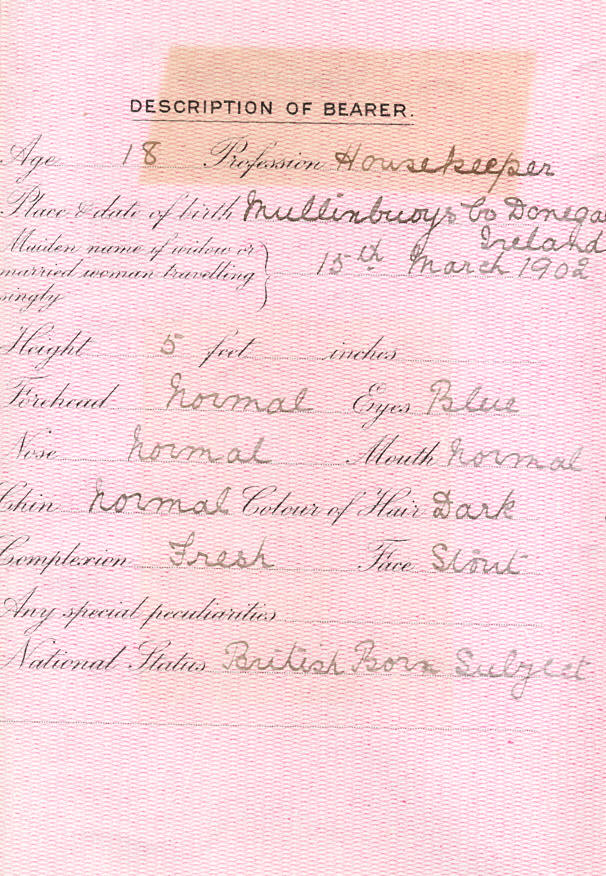 DESCRIPTION OF BEARER.
Age 18 Profession Housekeeper
Place & date of birth Mullinbuoys Co Donega
Ireland
Maiden name if widow or
married woman travelling
singly
15th March 1902
Height 5 feet inches
Forehead Normal Eyes Blue
Nose Normal Mouth Normal
Chin Normal Colour of Hair Dark
Complexion Fresh Face Stout
Any special peculiarities
National Status British Born Subject